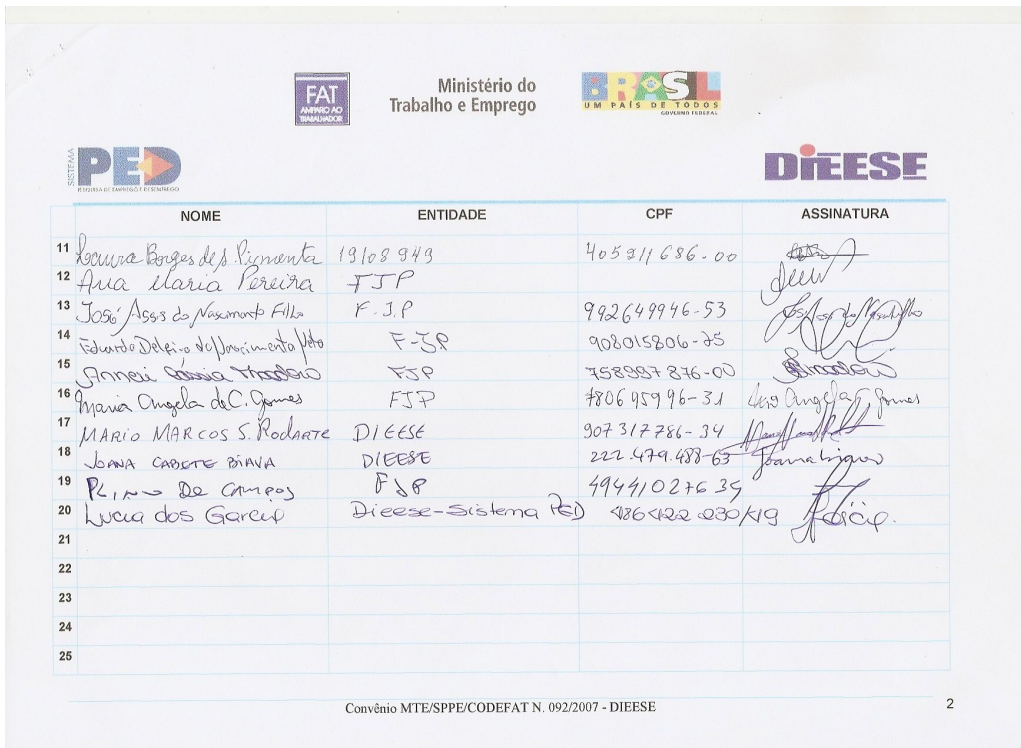 FAT
AMPARO AO
TRABALHADOR
Ministério do
Trabalho e Emprego
BRASIL
UM PAÍS DE TODOS
GOVERNO FEDERAL
SISTEMA
PED
PESQUISA DE EMPREGO E DESEMPREGO
DIEESE
NOME ENTIDADE CPF ASSINATURA
11 Laura Borges de S. Pimenta 19/08 949 405911686-00
12 Ana Maria Pereira FJP
13 José Assis do Nascimento Filho F.J.P 992649946-53
14 Eduardo do Nascimento Neto F-JP 908015806-25
15 Cássia FJP 758997876-00
16 Maria Angela de C. Gomes FJP 780695996-31 Angela C. Gomes
17 MARIO MARCOS S. RODARTE DIEESE 907317786-34
18 JOANA CABETE BIAVA DIEESE 222.479.488-63
19 PLINIO DE CAMPOS FJP 494410276 34
20 Lucia dos Garcia Dieese-Sistema PED 486422230/49
21
22
23
24
25
Convênio MTE/SPPE/CODEFAT N. 092/2007 - DIEESE
2